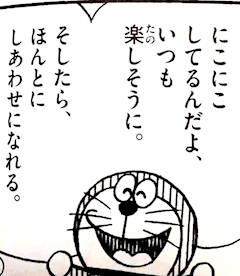 にこにこ
してるんだよ、
いつも
楽しそうに。
そしたら、
ほんとに
しあわせになれる。